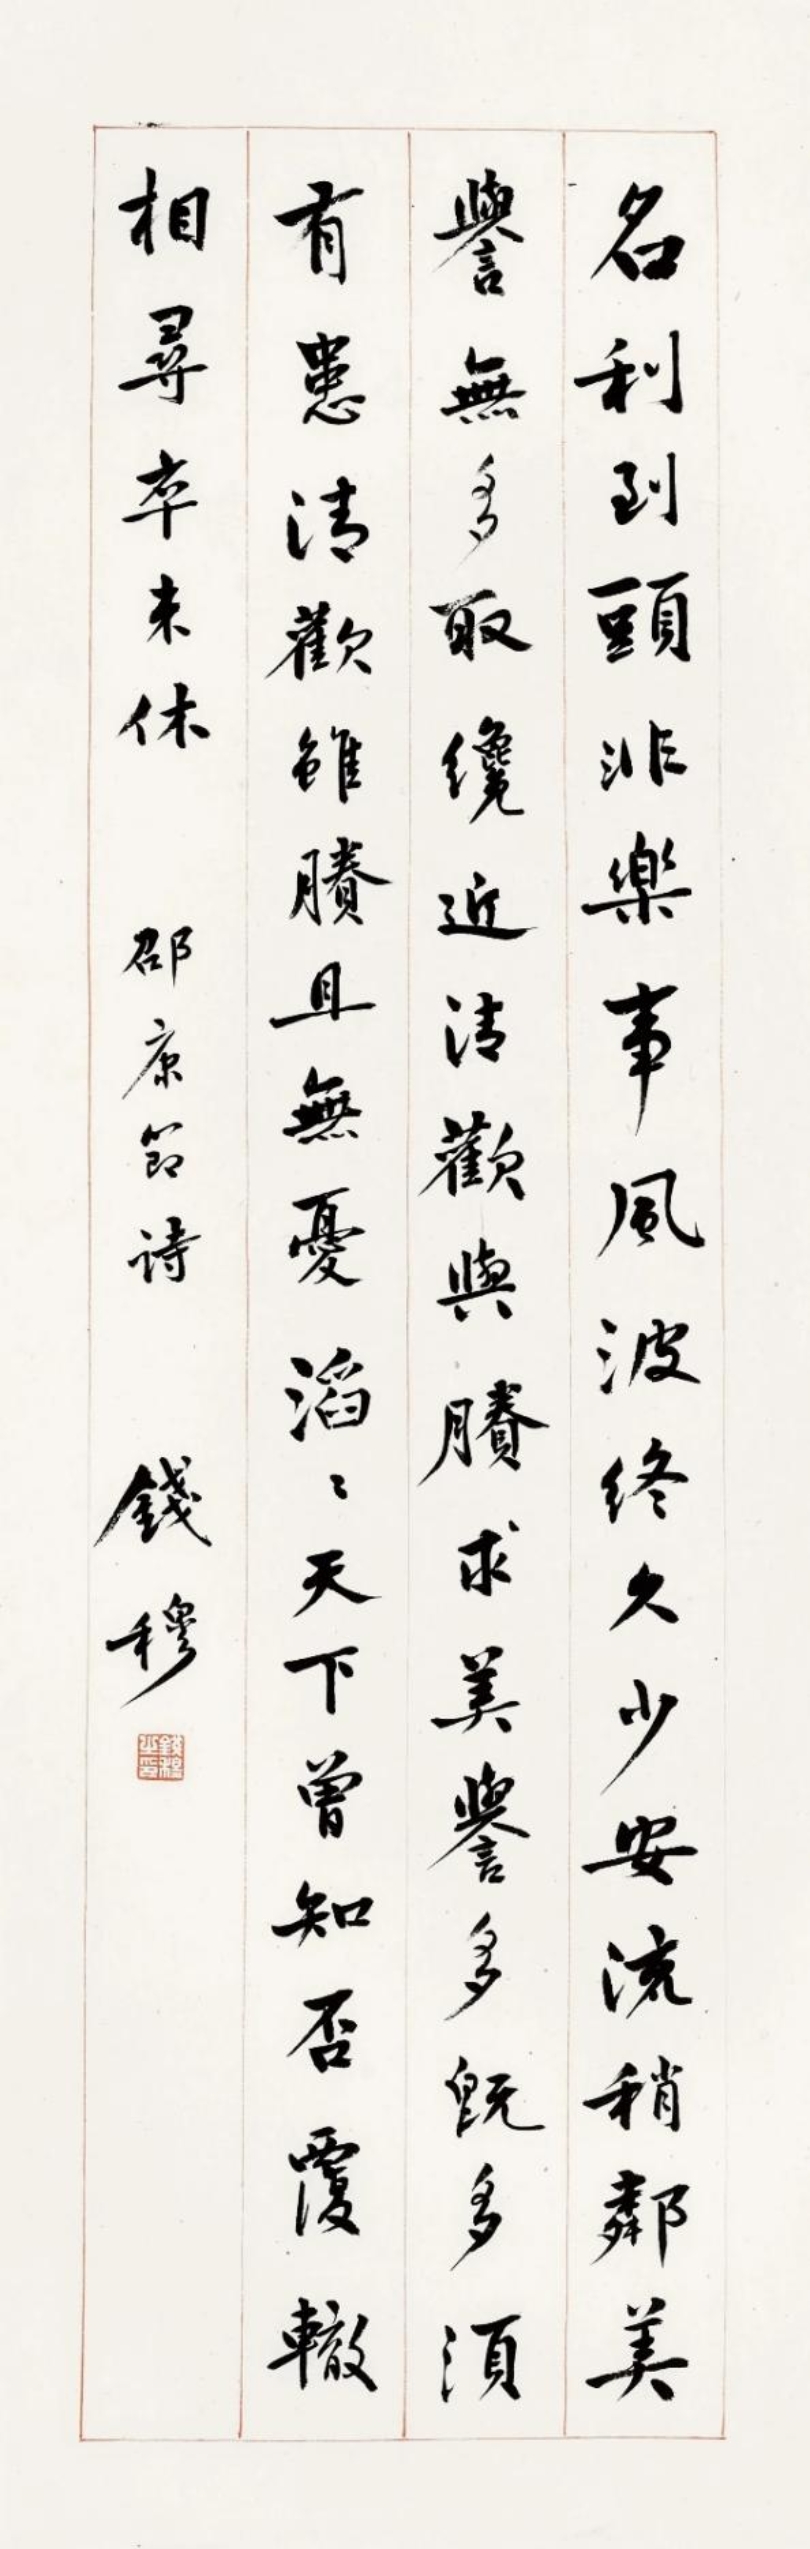 名利到頭非樂事風波終久少安流稍鄰美
譽無多取纔近清歡與賸求美譽多多旣多須
有患清歡雖賸且無憂滔〻天下曾知否覆轍
相尋卒未休 邵康節詩 錢穆
錢穆之印